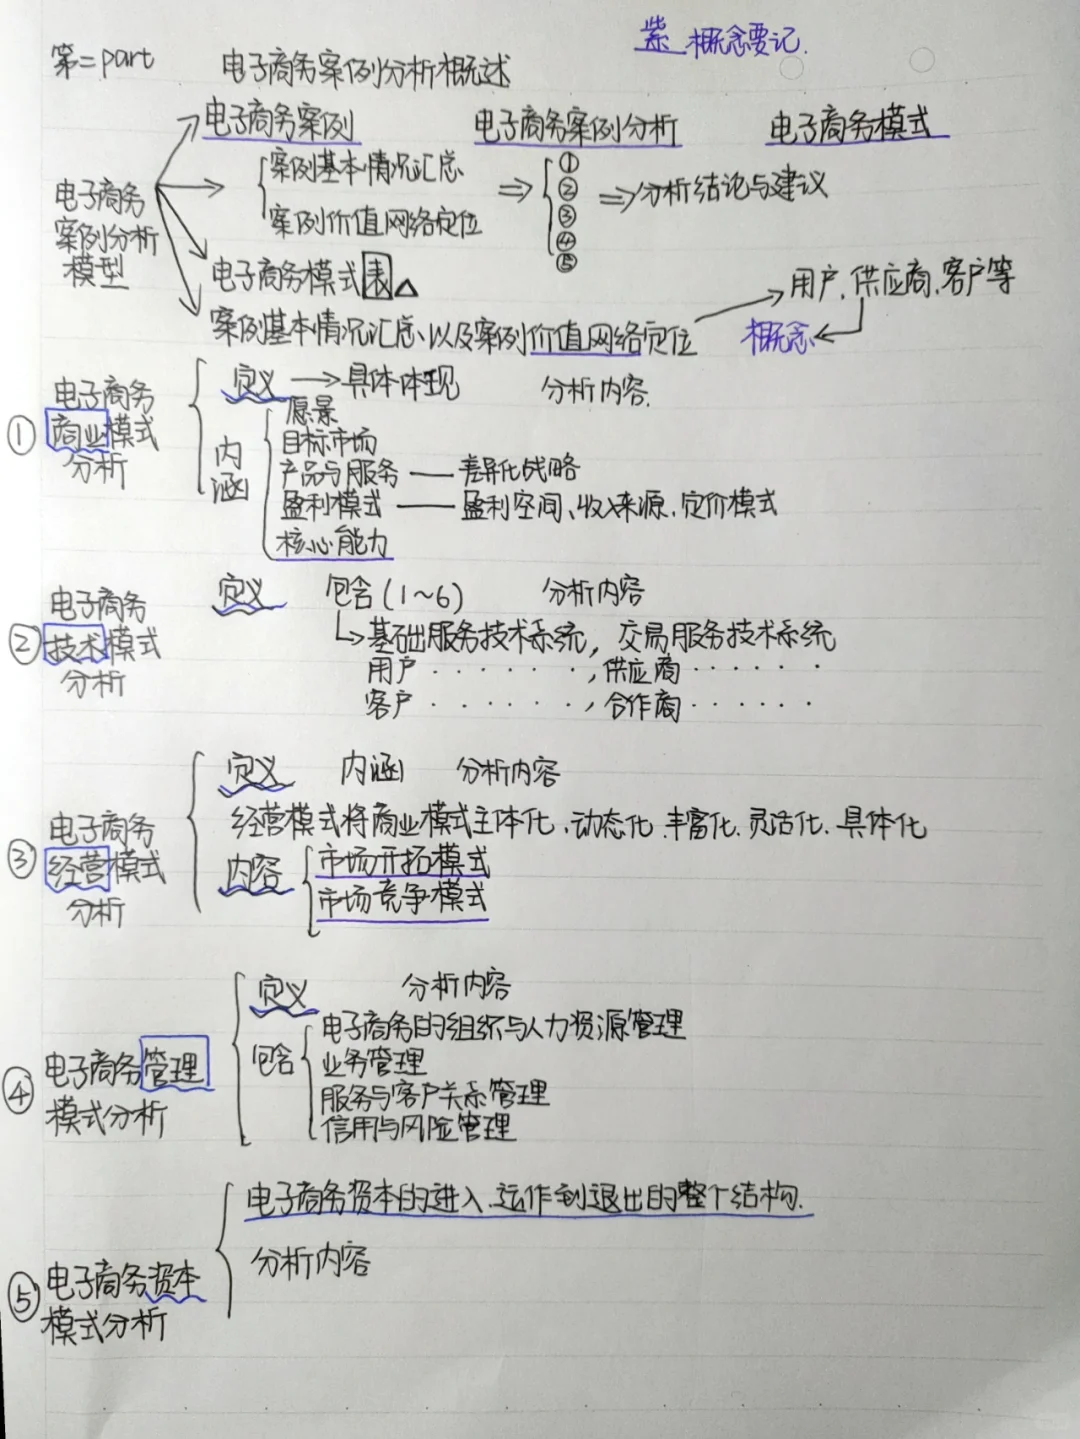 紫 概念要记.
第二part 电子商务案例分析概述
电子商务案例 电子商务案例分析 电子商务模式
电子商务
案例分析
模型
案例基本情况汇总
案例价值网络定位
⇒ ①
②
③
④
⑤
⇒ 分析结论与建议
电子商务模式表△
案例基本情况汇总、以及案例价值网络定位 → 用户、供应商、客户等
概念
① 电子商务
商业模式
分析
定义 → 具体体现 分析内容.
内涵
愿景
目标市场
产品与服务 —— 差异化战略
盈利模式 —— 盈利空间、收入来源、定价模式
核心能力
② 电子商务
技术模式
分析
定义 包含(1~6) 分析内容
基础服务技术系统, 交易服务技术系统
用户 · · · · · · , 供应商 · · · · · ·
客户 · · · · · · , 合作商 · · · · · ·
③ 电子商务
经营模式
分析
定义 内涵 分析内容
经营模式将商业模式主体化、动态化、丰富化、灵活化、具体化
内容
市场开拓模式
市场竞争模式
④ 电子商务管理
模式分析
定义 分析内容
包含
电子商务的组织与人力资源管理
业务管理
服务与客户关系管理
信用与风险管理
⑤ 电子商务资本
模式分析
电子商务资本的进入、运作到退出的整个结构.
分析内容